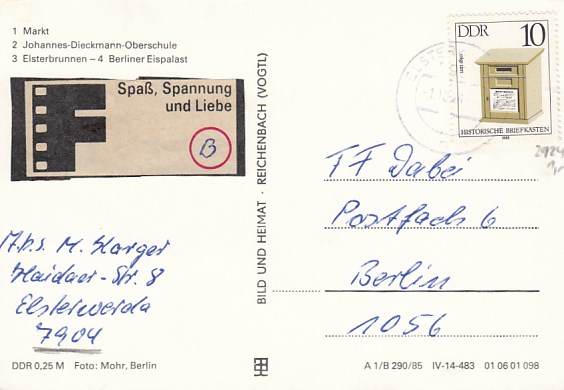 1 Markt
2 Johannes-Dieckmann-Oberschule
3 Elsterbrunnen – 4 Berliner Eispalast
Spaß, Spannung
und Liebe
B
Abs. M. Karger
Haidaer-Str. 8
Elsterwerda
7904
DDR 0,25 M Foto: Mohr, Berlin
BILD UND HEIMAT · REICHENBACH (VOGTL)
DDR 10
HISTORISCHE BRIEFKÄSTEN
TF Dabei
Postfach 6
Berlin
1056
A 1/B 290/85 IV-14-483 01 06 01 098